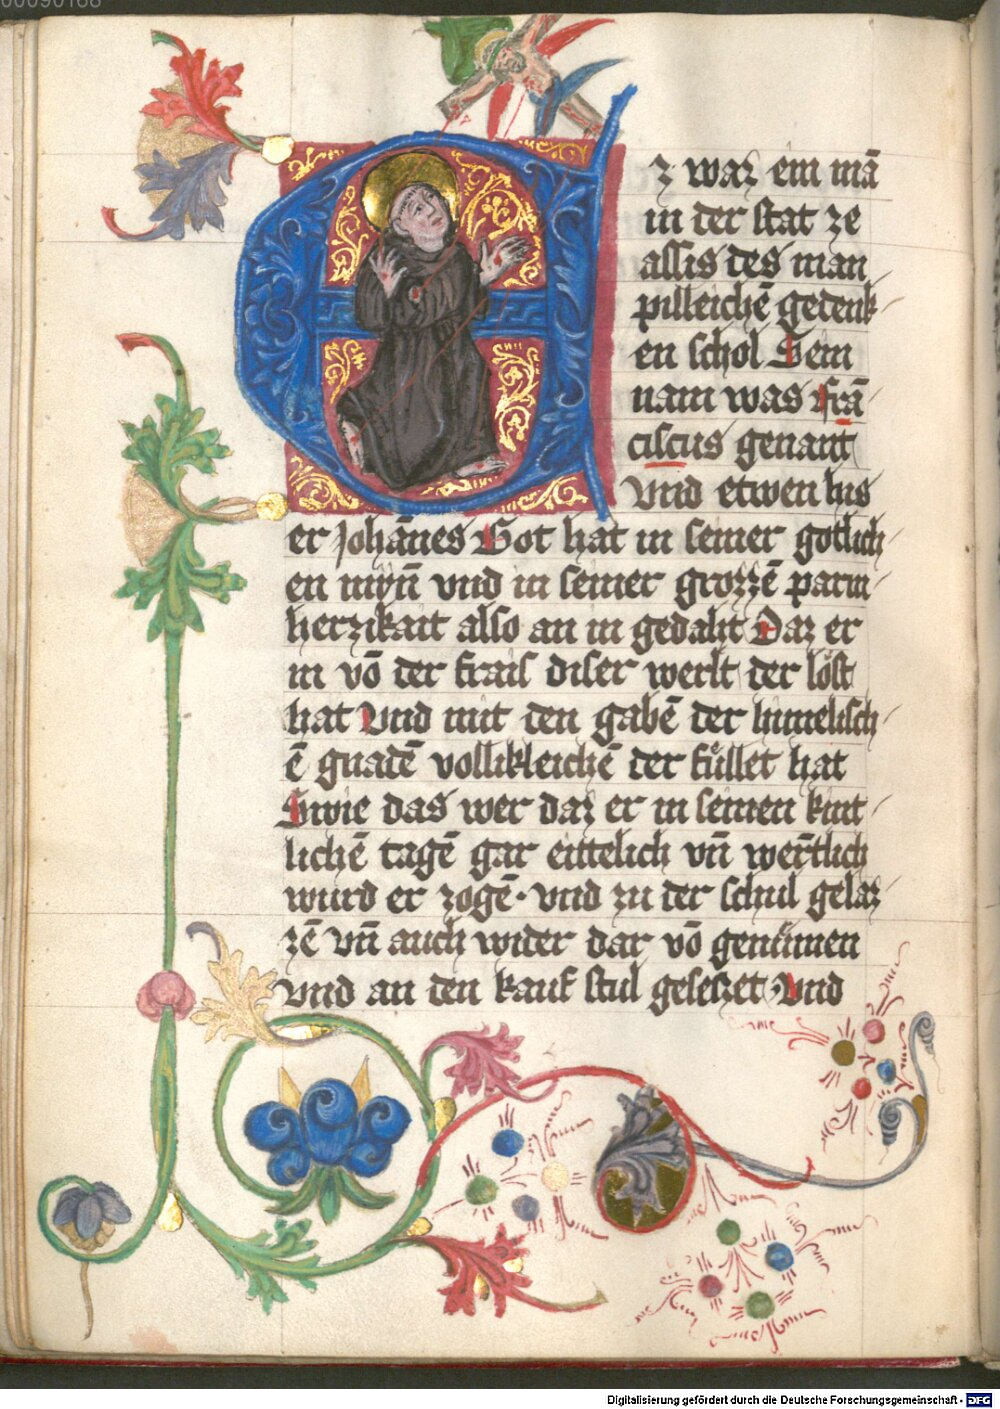 00090168
Ez waz ein mā
in der stat ze
assis des man
pilleichē gedenk
en schol Sein
nam was Frā
ciscus genant
Vnd etwen hies
er Johānes Got hat in seiner gotlich
en myn̄ vnd in seiner grozzē parm
herzikait also an in gedaht Daz er
in vō der frais diser werlt der lost
hat Vnd mit den gabē der himelisch
ē gnadē vollikleichē der fullet hat
Swie das wer daz er in seinen kint
lichē tagē gar eittelich vn̄ wertlich
wurd er zogē · vnd zu der schul gelaz
zē vn̄ auch wider dar vō genumen
vnd an den kauf stul geseczet · Vnd
Digitalisierung gefördert durch die Deutsche Forschungsgemeinschaft - DFG